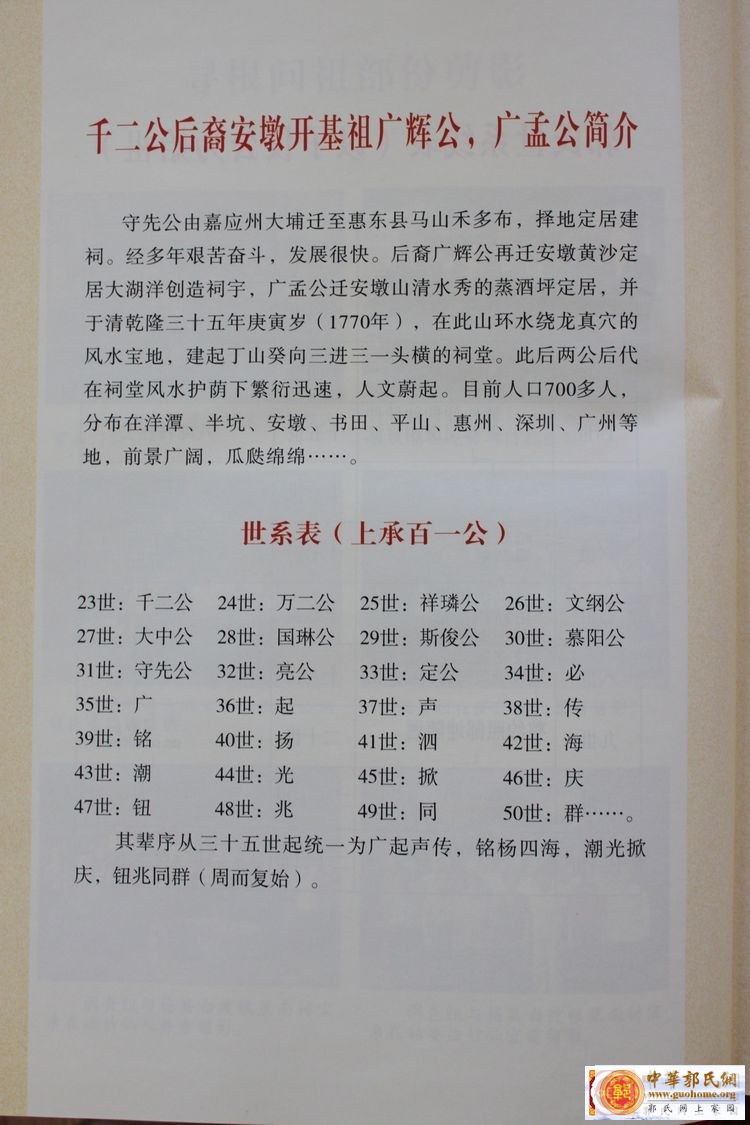 千二公后裔安墩开基祖广辉公，广孟公简介
守先公由嘉应州大埔迁至惠东县马山禾多布，择地定居建
祠。经多年艰苦奋斗，发展很快。后裔广辉公再迁安墩黄沙定
居大湖洋创造祠宇，广孟公迁安墩山清水秀的蒸酒坪定居，并
于清乾隆三十五年庚寅岁（1770年），在此山环水绕龙真穴的
风水宝地，建起丁山癸向三进三一头横的祠堂。此后两公后代
在祠堂风水护荫下繁衍迅速，人文蔚起。目前人口700多人，
分布在洋潭、半坑、安墩、书田、平山、惠州、深圳、广州等
地，前景广阔，瓜瓞绵绵……。
世系表（上承百一公）
23世：千二公 24世：万二公 25世：祥璘公 26世：文纲公
27世：大中公 28世：国琳公 29世：斯俊公 30世：慕阳公
31世：守先公 32世：亮公 33世：定公 34世：必
35世：广 36世：起 37世：声 38世：传
39世：铭 40世：扬 41世：泗 42世：海
43世：潮 44世：光 45世：掀 46世：庆
47世：钮 48世：兆 49世：同 50世：群……。
其辈序从三十五世起统一为广起声传，铭杨四海，潮光掀
庆，钮兆同群（周而复始）。
中華郭氏網
www.guohome.org
郭氏网上家园